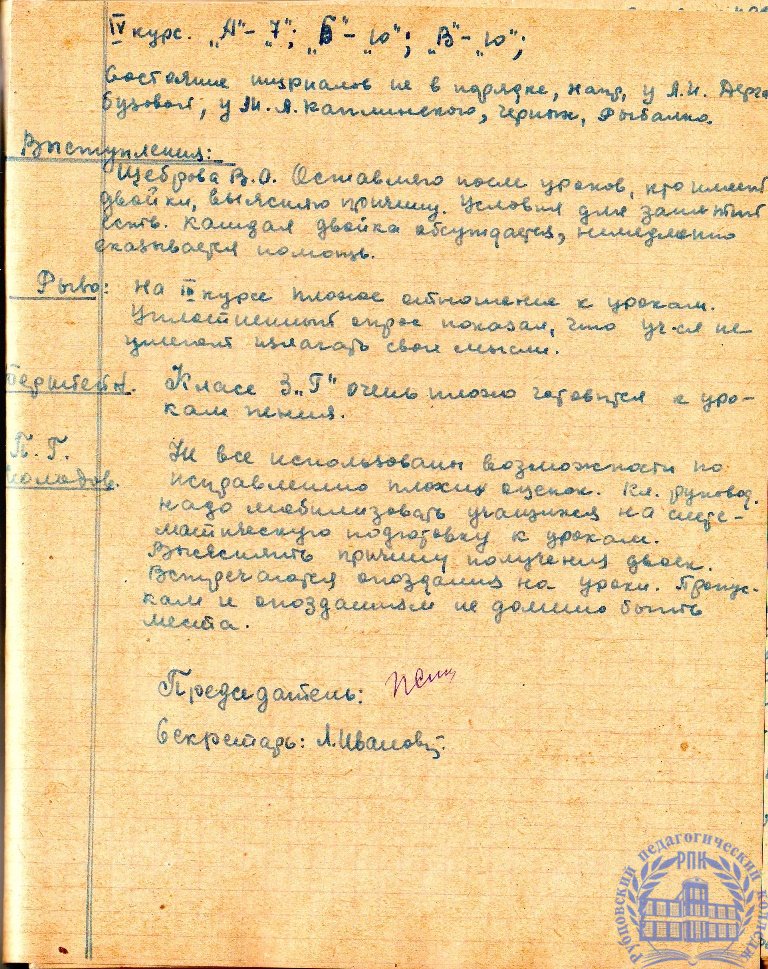 IV курс. „А"-„7"; „Б"-„10"; „В"-„10";
Состояние журналов не в порядке, напр, у Л.И. Дерга
бузовой, у М.Я. Каплинского, Черных, Рыбалко.
Выступления:
Щеброва В.О. Оставляю после уроков, кто имеет
двойки, выясняю причину. Условия для занятий
есть. Каждая двойка обсуждается, немедленно
оказывается помощь.
Рыво: На IV курсе плохое отношение к урокам.
Уплотненный опрос показал, что уч-ся не
умеют излагать свои мысли.
Класс 3„Г" очень плохо готовится к уро-
кам пения.
П. Г.
Не все использованы возможности по
исправлению плохих оценок. Кл. руковод.
надо мобилизовать учащихся на систе-
матическую подготовку к урокам.
Выяснять причину получения двоек.
Встречаются опоздания на уроки. Пропус-
кам и опозданиям не должно быть
места.
Председатель:
Секретарь: Л.Иванова
Рубцовский педагогический колледж
РПК